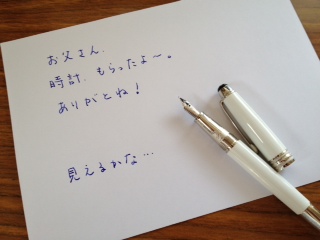 お父さん、
時計、もらったよ〜。
ありがとね！
見えるかな…